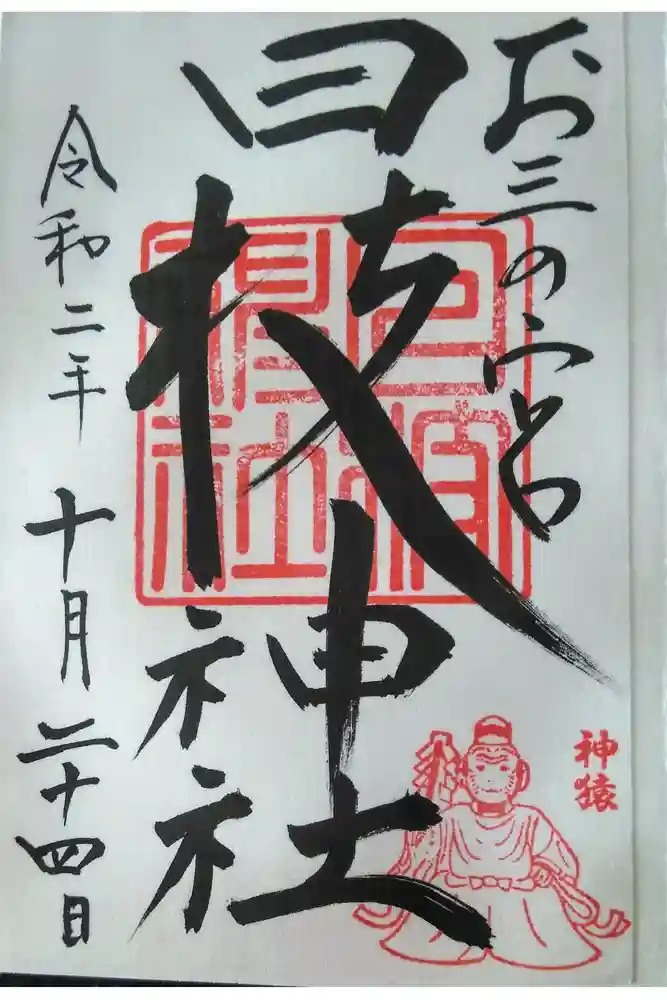 お三の宮
日枝神社
日枝神社
神猿
令和二年 十月 二十四日